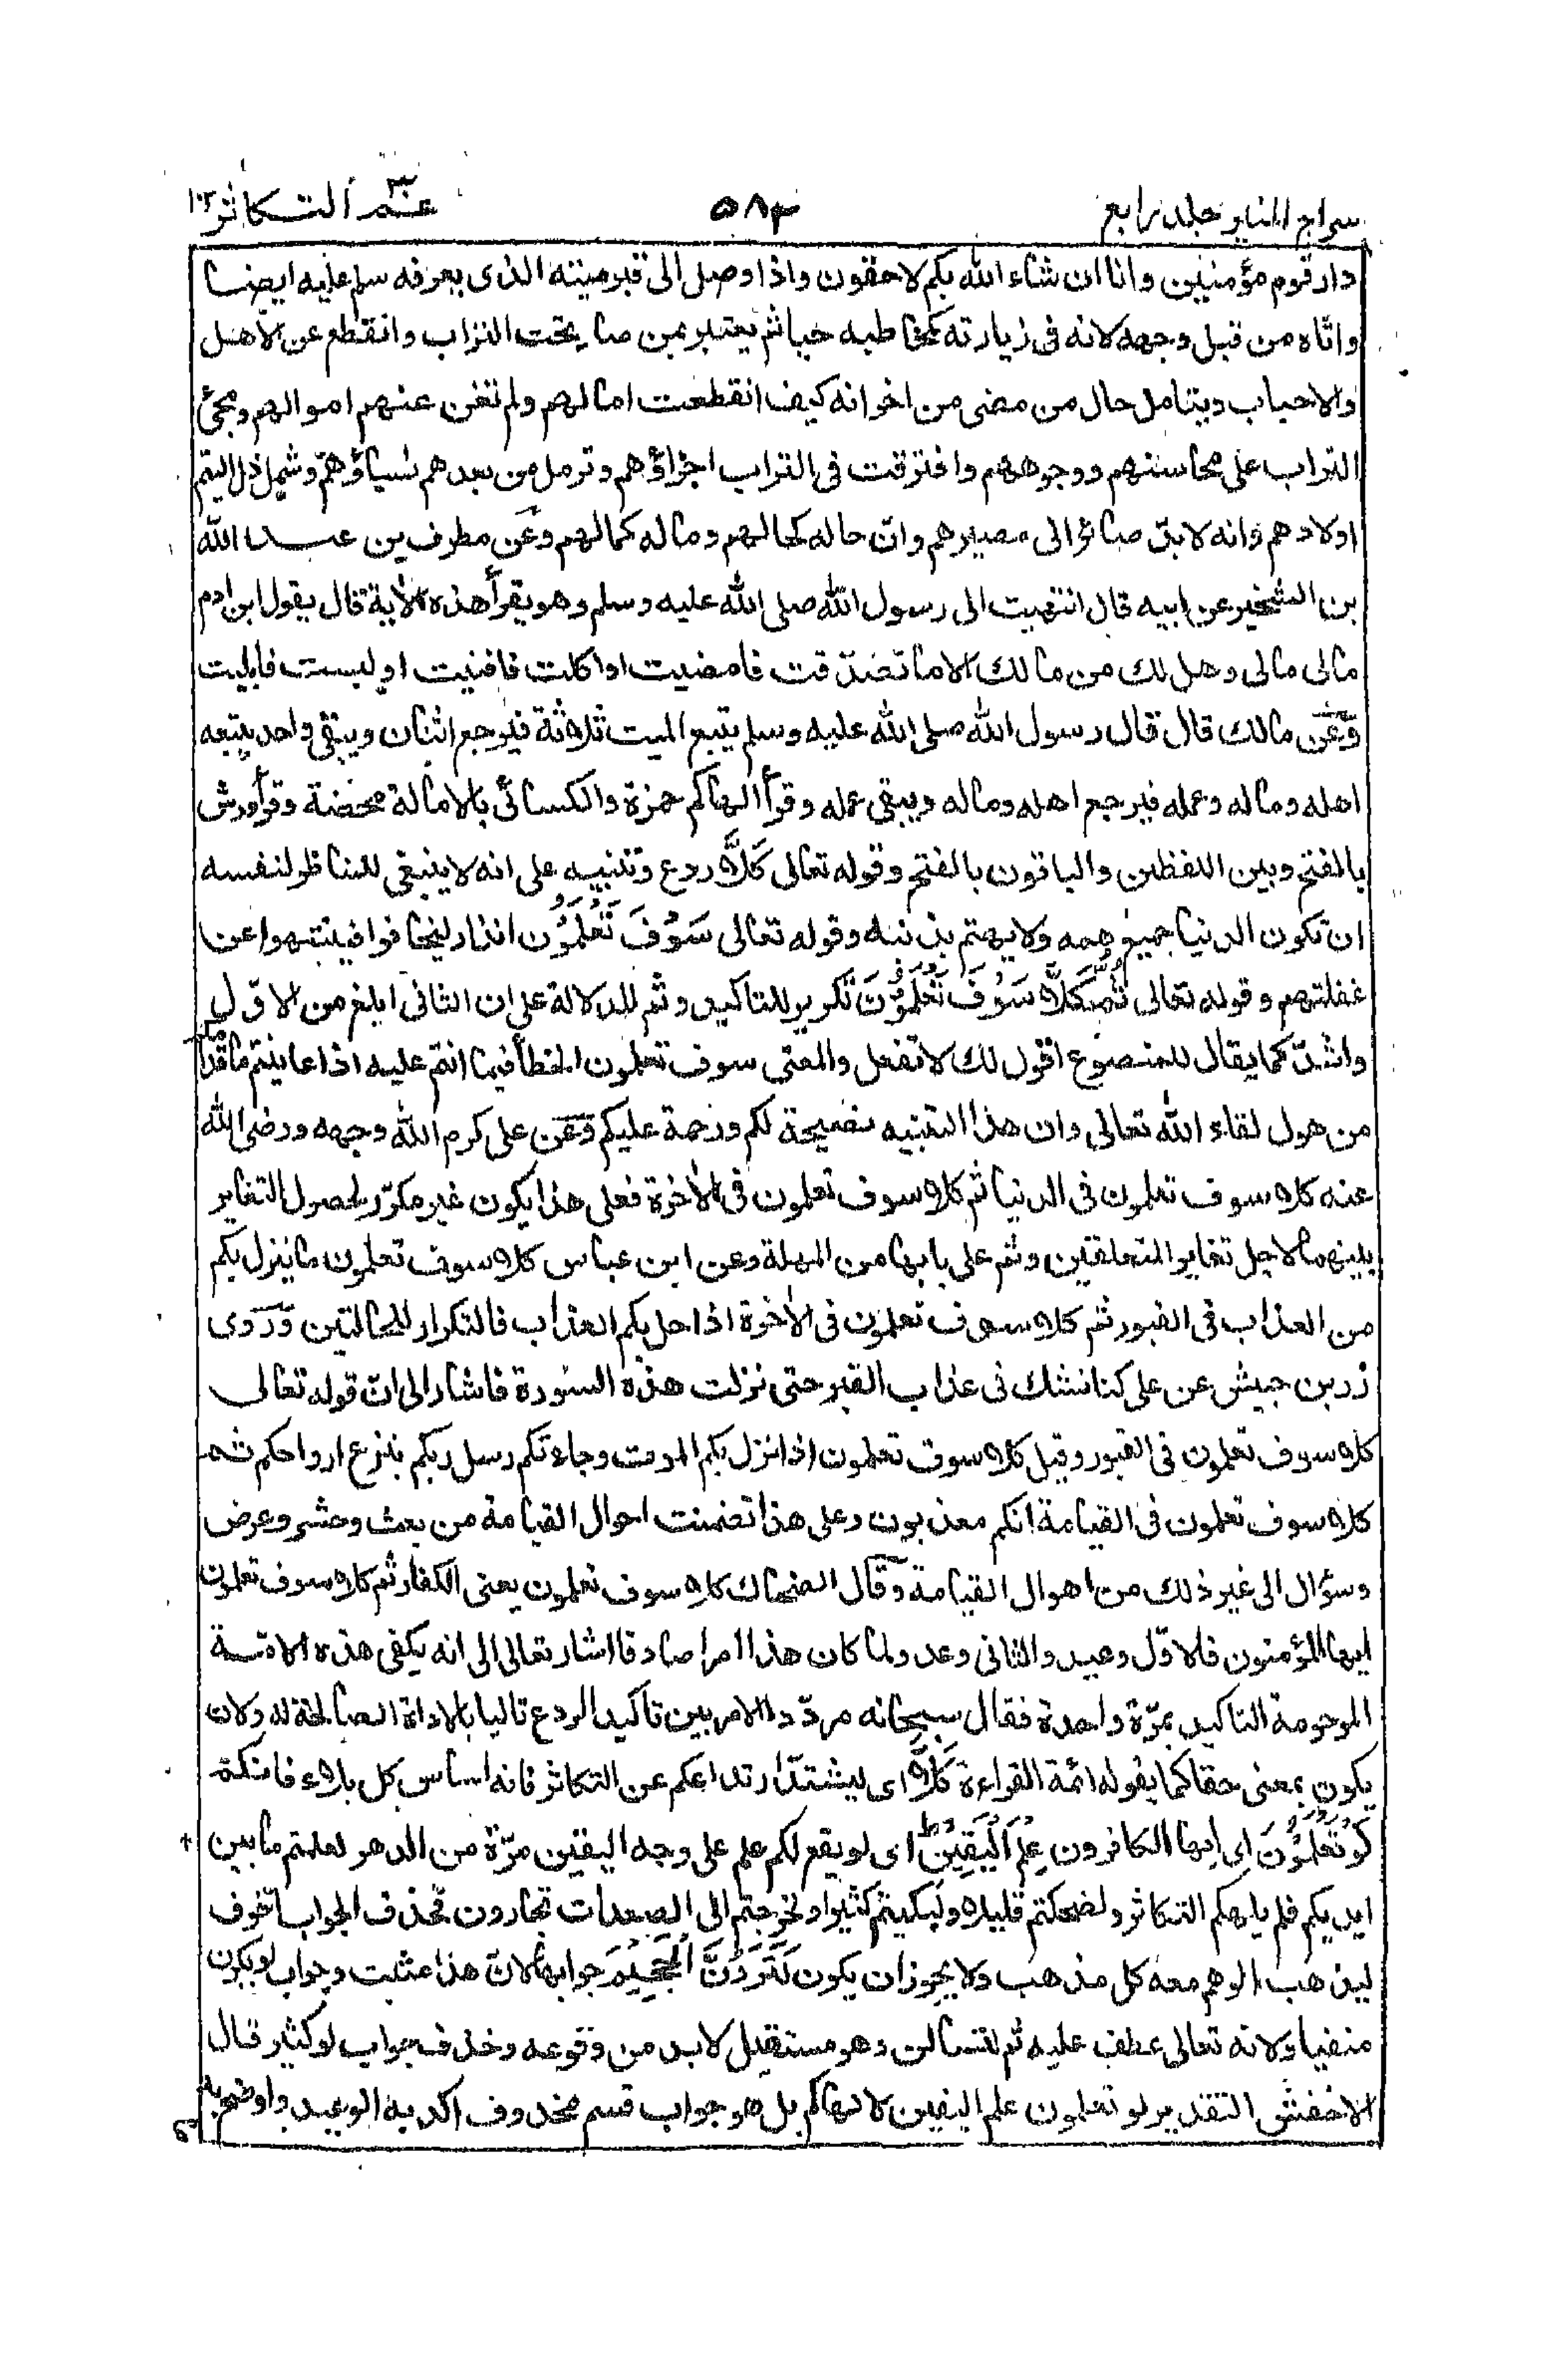 سراج المنير جلد رابع
٥٨٣
عم التكاثر ١٠٢
دار قوم مؤمنين وانا ان شاء الله بكم لاحقون واذا وصل الى قبر ميته الذى يعرفه سلم عليه ايضا
واتاه من قبل وجهه لانه فى زيارته كمخاطبه حيا ثم يعتبر بمن صار تحت التراب وانقطع عن الاهل
والاحباب ويتامل حال من مضى من اخوانه كيف انقطعت امالهم ولم تغن عنهم اموالهم ومجئ
التراب على محاسنهم ووجوههم وافترقت فى التراب اجزاؤهم وترمل من بعدهم نساؤهم وشمل ذل اليتم
اولادهم وانه لابد صائر الى مصيرهم وان حاله كحالهم وماله كمالهم وعن مطرف بن عبد الله
بن الشخير عن ابيه قال انتهيت الى رسول الله صلى الله عليه وسلم وهو يقرأ هذه الآية قال يقول ابن ادم
مالى مالى وهل لك من مالك الا ما تصدقت فامضيت او اكلت فافنيت او لبست فابليت
وعن مالك قال قال رسول الله صلى الله عليه وسلم يتبع الميت ثلاثة فيرجع اثنان ويبقى واحد يتبعه
اهله وماله وعمله فيرجع اهله وماله ويبقى عمله وقرأ الهاكم حمزة والكسائى بالامالة محضة وقرأ ورش
بالفتح وبين اللفظين والباقون بالفتح وقوله تعالى كَلَّا ردع وتنبيه على انه لا ينبغى للناظر لنفسه
ان تكون الدنيا جميع همه ولا يهتم بدينه وقوله تعالى سَوْفَ تَعْلَمُوْن انذار ليخافوا فينتبهوا عن
غفلتهم وقوله تعالى ثُمَّ كَلَّا سَوْفَ تَعْلَمُوْنَ تكرير للتاكيد وثم للدلالة على ان الثانى ابلغ من الاول
واشد كما يقال للمنصوح اقول لك لا تفعل والمعنى سوف تعلمون الخطأ فيما انتم عليه اذا عاينتم ما قدامكم
من هول لقاء الله تعالى وان هذا التنبيه نصيحة لكم ورحمة عليكم وعن على كرم الله وجهه ورضى الله
عنه كلا سوف تعلمون فى الدنيا ثم كلا سوف تعلمون فى الآخرة فعلى هذا يكون غير مكرر لحصول التغاير
بينهما لاجل تغاير المتعلقين وثم على بابها من المهلة وعن ابن عباس كلا سوف تعلمون ما ينزل بكم
من العذاب فى القبور ثم كلا سوف تعلمون فى الآخرة اذا حل بكم العذاب فالتكرار للحالتين وروى
زر بن حبيش عن على كنا نشك فى عذاب القبر حتى نزلت هذه السورة فاشار الى ان قوله تعالى
كلا سوف تعلمون فى القبور وقيل كلا سوف تعلمون اذا نزل بكم الموت وجاءتكم رسل ربكم بنزع ارواحكم ثم
كلا سوف تعلمون فى القيامة انكم معذبون وعلى هذا تضمنت احوال القيامة من بعث وحشر وعرض
وسؤال الى غير ذلك من اهوال القيامة وقال الضحاك كلا سوف تعلمون يعنى الكفار ثم كلا سوف تعلمون
ايها المؤمنون فالاول وعيد والثانى وعد ولما كان هذا امرا صادقا اشار تعالى الى انه يكفى هذه الامة
المرحومة التاكيد بمرة واحدة فقال سبحانه مرددا الامر بين تاكيد الردع تاليا بالاداة الصالحة له ولان
يكون بمعنى حقا كما يقوله ائمة القراءة كَلَّا اى ليشتد ارتداعكم عن التكاثر فانه اساس كل بلاء فانكم
لَوْ تَعْلَمُوْنَ اى ايها الكافرون عِلْمَ الْيَقِيْنِ ط اى لو يقع لكم علم على وجه اليقين مرة من الدهر لعلمتم ما بين
ايديكم فلم يلهكم التكاثر ولضحكتم قليلا ولبكيتم كثيرا ولخرجتم الى الصعدات تجارون فحذف الجواب اخوف
ليذهب الوهم معه كل مذهب ولا يجوز ان يكون لَتَرَوُنَّ الْجَحِيْمَ جوابها لان هذا مثبت وجواب لو يكون
منفيا ولانه تعالى عطف عليه ثم لتسالن وهو مستقبل لابد من وقوعه وحذف جواب لو كثير قال
الاخفش التقدير لو تعلمون علم اليقين لالهاكم بل هو جواب قسم محذوف اكد به الوعيد واوضح به